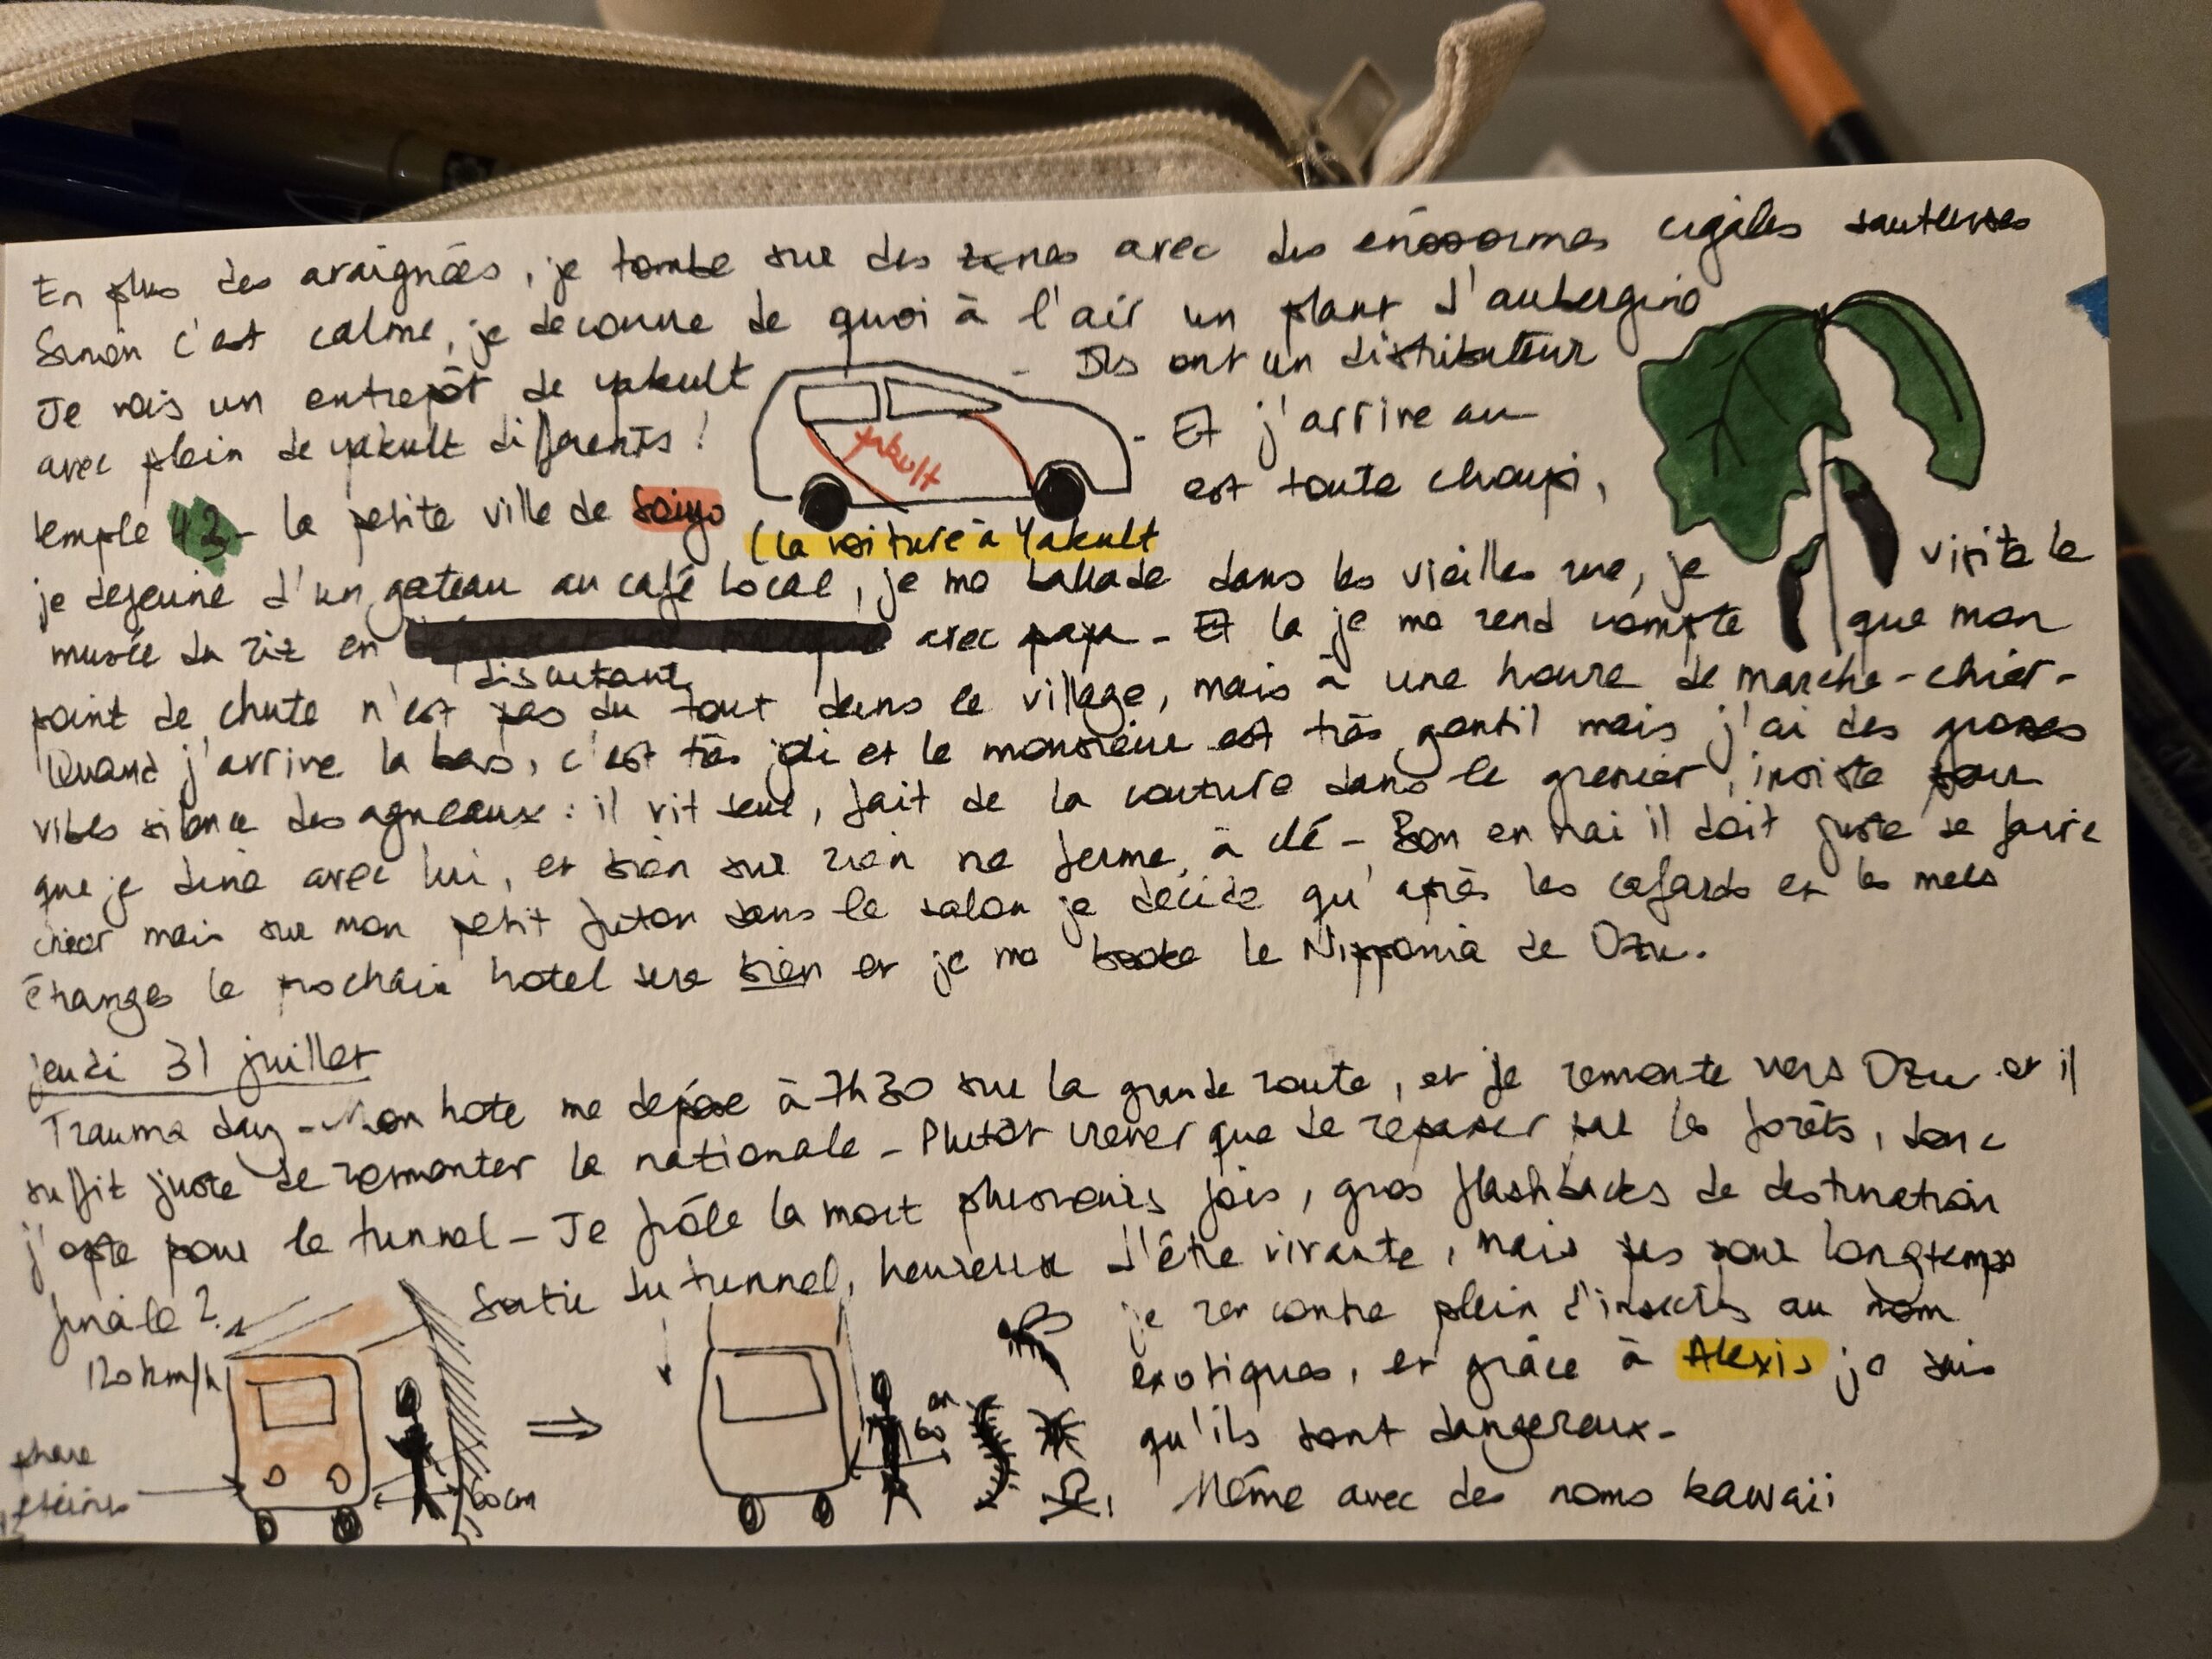 En plus des araignées, je tombe sur des zones avec des énormes cigales sauteuses
Sinon c'est calme, je decouvre de quoi à l'air un plant d'aubergine
Je vois un entrepôt de yakult - Ils ont un distributeur
avec plein de yakult differents ! - Et j'arrive au
yakult
temple 43 - la petite ville de Saiyo est toute choupi,
(la voiture à Yakult
je dejeune d'un gateau au café local, je me ballade dans les vieilles rue, je visite le
musée du riz en discutant avec papa - Et la je me rend compte que mon
point de chute n'est pas du tout dans le village, mais à une heure de marche - chier -
Quand j'arrive la bas, c'est très joli et le monsieur est très gentil mais j'ai des grosses
vibes silence des agneaux : il vit seul, fait de la couture dans le grenier, insiste pour
que je dine avec lui, et bien sur rien ne ferme à clé - Bon en vrai il doit juste se faire
chier mais sur mon petit futon dans le salon je decide qu'après les cafards et les mecs
étranges le prochain hotel sera bien et je me booke le Nipponia de Ozu.
jeudi 31 juillet
Trauma day - Mon hote me depose à 7h30 sur la grande route, et je remonte vers Ozu et il
suffit juste de remonter la nationale - Plutôt crever que de repasser par les forêts, donc
j'opte pour le tunnel - Je frôle la mort plusieurs fois, gros flashbacks de destination
finale 2. Sortie du tunnel, heureuse d'être vivante, mais pas pour longtemps
je rencontre plein d'insectes au nom
120 km/h
exotiques, et grâce à Alexis je sais
60 cm
qu'ils sont dangereux -
phare
éteints
60 cm
Même avec des noms kawaii